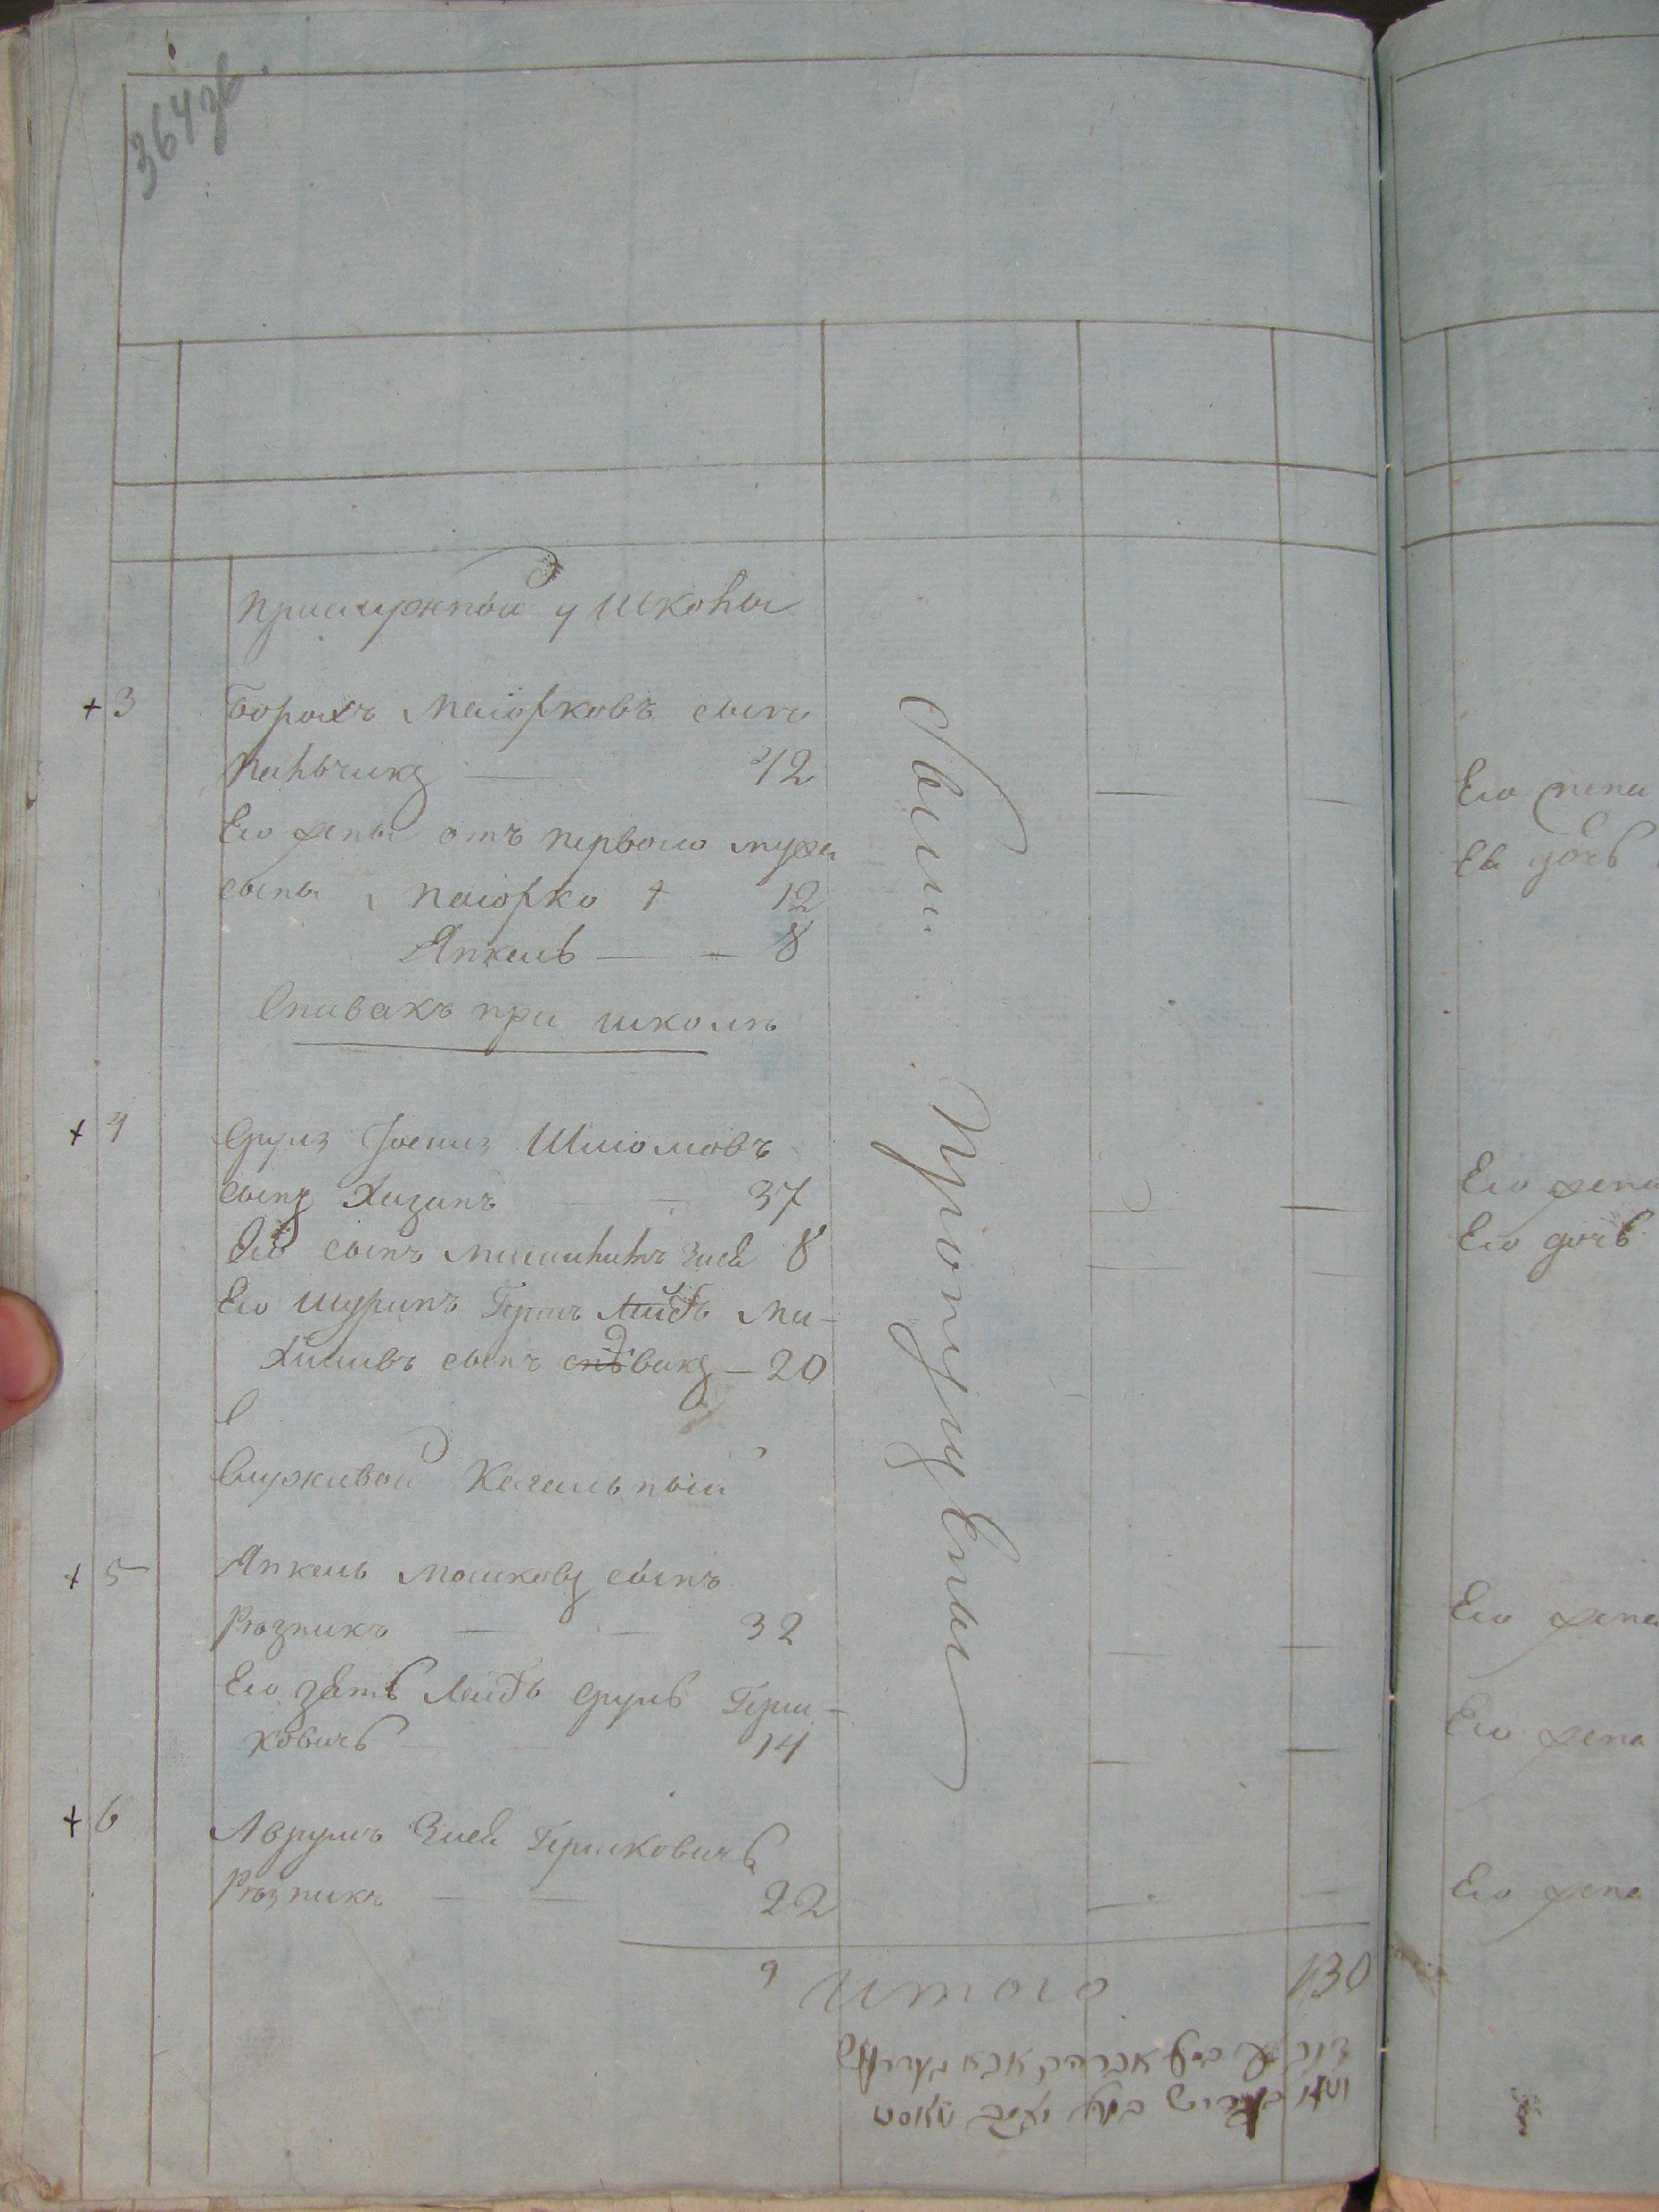 364 зв.
Прислужный у школы
+ 3
Борохъ Маіорковъ сынъ
Пальчикъ — 42
Его жены отъ перваго мужа
сыны, Маіорко + 12
Янкель — 8
Спивакъ при школѣ
+ 4
Сруль Іосипъ Шліомовъ
сынъ Хазанъ — 37
Его сынъ Зисель 8
Его шуринъ Гершъ Лейбъ Ми-
хиливъ сынъ спѣвакъ — 20
Служивой Кагальный
+ 5
Янкель Мошковъ сынъ
Рѣзникъ — 32
Его зять Лейбъ Сруль Герш-
ковичъ 14
+ 6
Аврумъ Зисель Гершковичъ
Рѣзникъ — 22
9 Итого 130
Были Пропущены
Его жена
Ея дочь
Его жена
Его дочь
Его жена
Его жена
Его жена